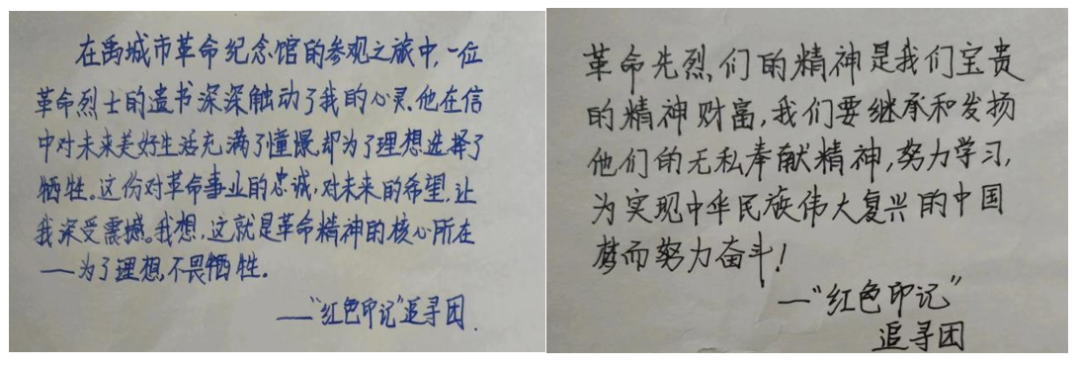 在禹城市革命纪念馆的参观之旅中,一位
革命烈士的遗书深深触动了我的心灵.他在信
中对未来美好生活充满了憧憬,却为了理想选择了
牺牲。这份对革命事业的忠诚,对未来的希望,让
我深受震撼。我想,这就是革命精神的核心所在
——为了理想,不畏牺牲.
——“红色印记”追寻团.
革命先烈们的精神是我们宝贵
的精神财富,我们要继承和发扬
他们的无私奉献精神,努力学习,
为实现中华民族伟大复兴的中国
梦而努力奋斗!
—“红色印记”
追寻团